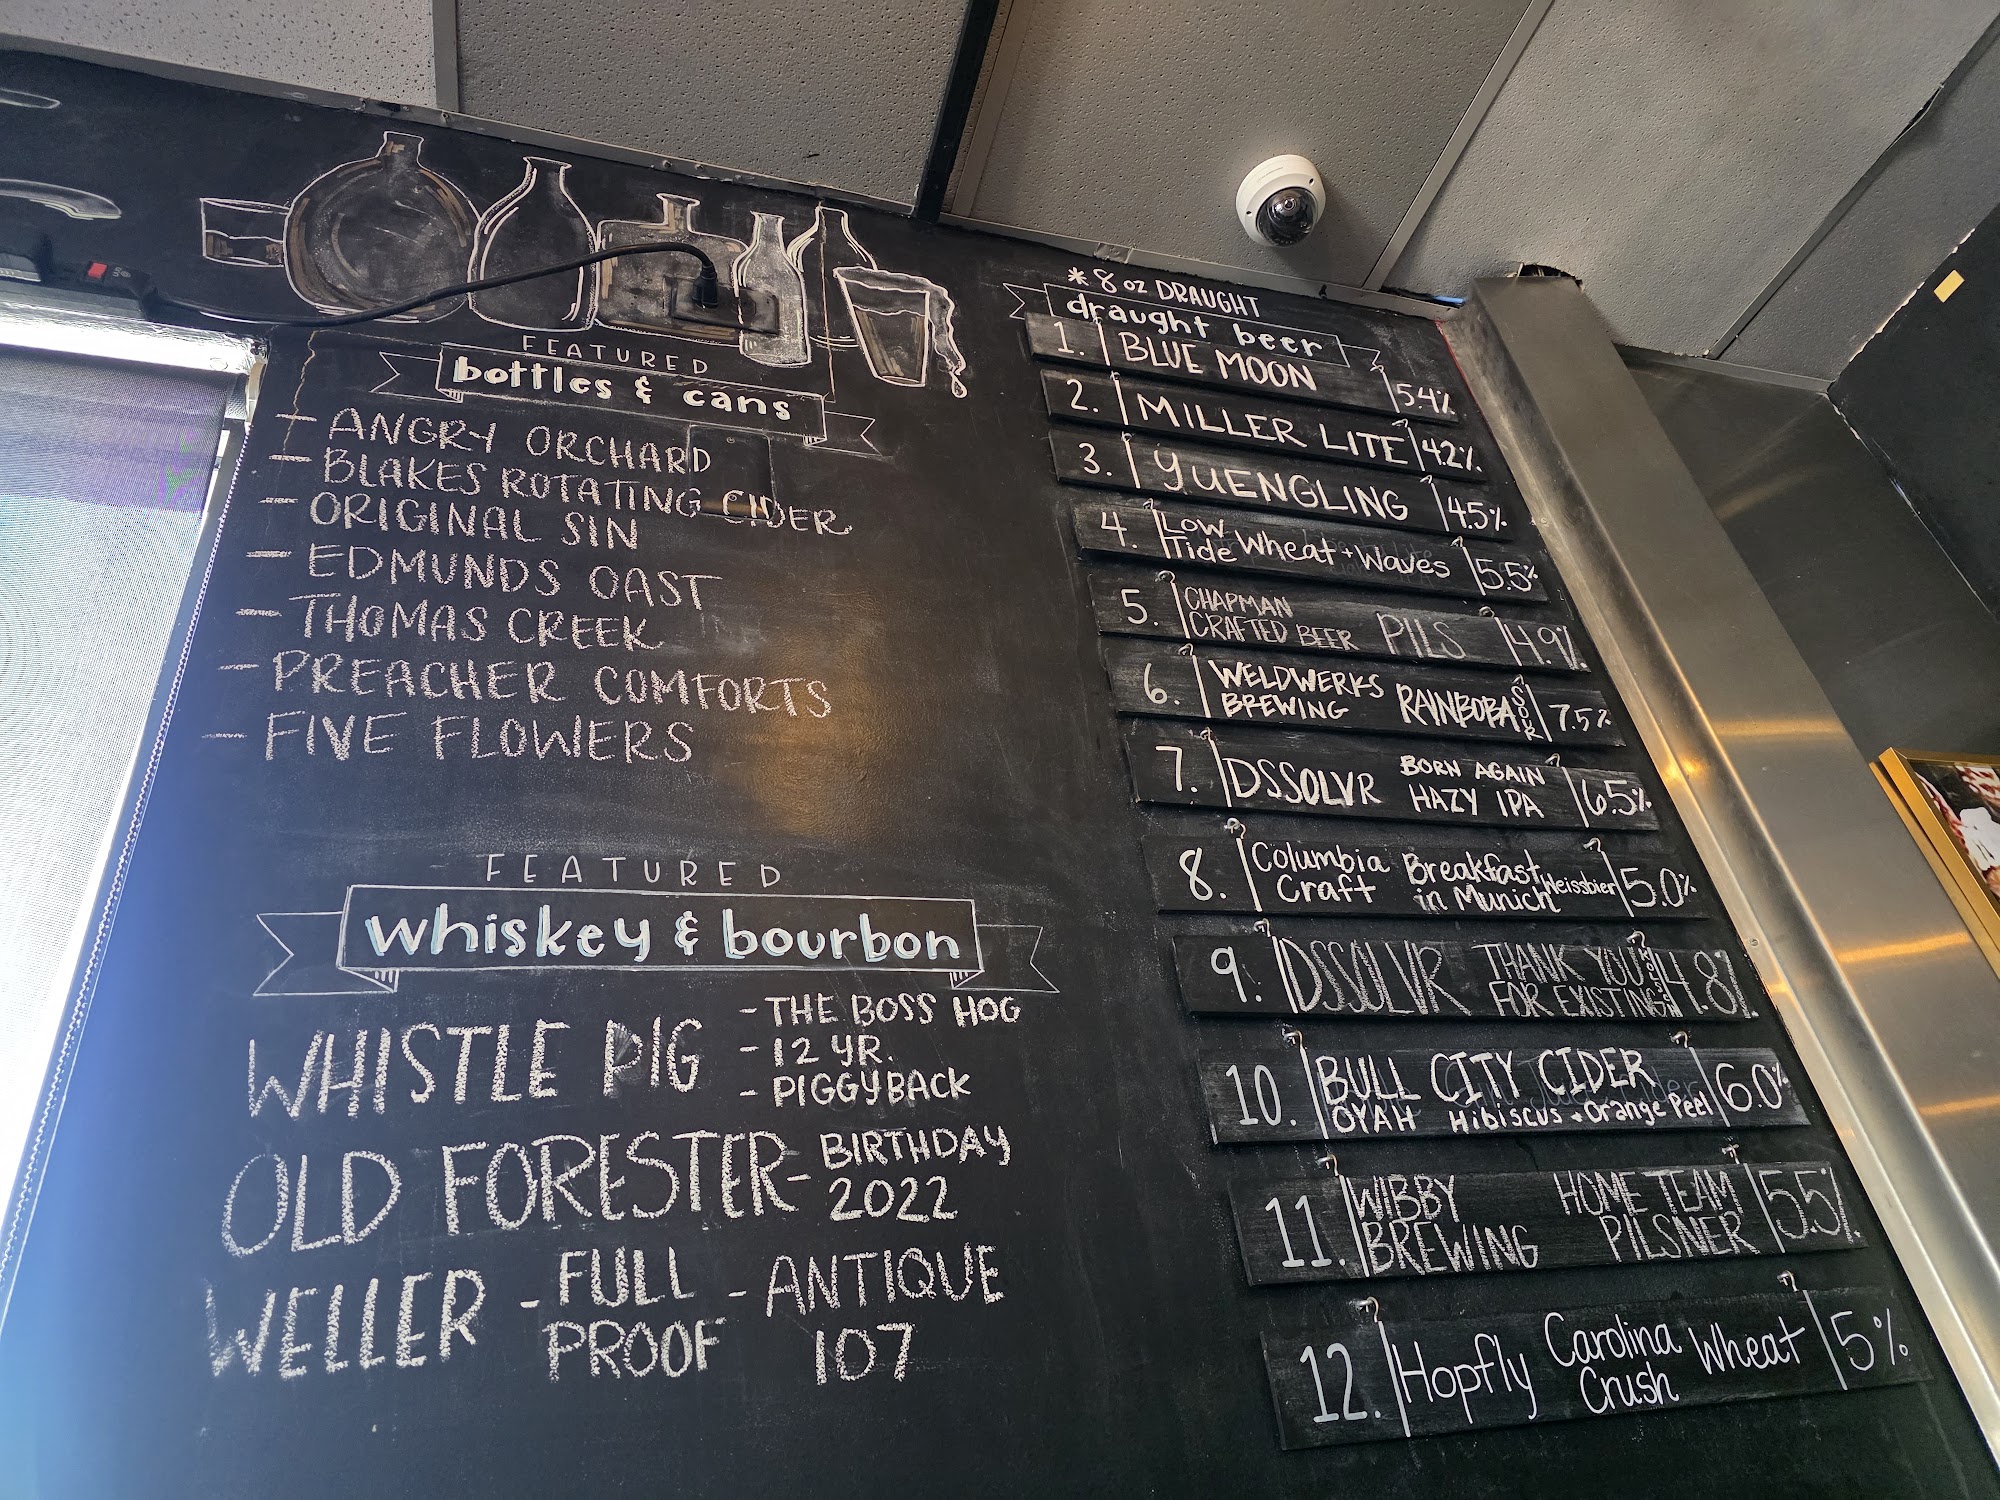 FEATURED
bottles & cans
- ANGRY ORCHARD
- BLAKES ROTATING CIDER
- ORIGINAL SIN
- EDMUNDS OAST
- THOMAS CREEK
- PREACHER COMFORTS
- FIVE FLOWERS
FEATURED
whiskey & bourbon
WHISTLE PIG
- THE BOSS HOG
- 12 YR.
- PIGGYBACK
OLD FORESTER -
BIRTHDAY
2022
WELLER
- FULL
PROOF
- ANTIQUE
107
* 8 oz DRAUGHT
draught beer
1. BLUE MOON 5.4%
2. MILLER LITE 4.2%
3. YUENGLING 4.5%
4. Low Tide Wheat + Waves 5.5%
5. CHAPMAN CRAFTED BEER PILS 4.9%
6. WELDWERKS BREWING RAINBOBA SOUR 7.5%
7. DSSOLVR BORN AGAIN HAZY IPA 6.5%
8. Columbia Craft Breakfast in Munich Weissbier 5.0%
9. DSSOLVR THANK YOU FOR EXISTING 4.8%
10. BULL CITY CIDER 6.0%
OYAH Hibiscus + Orange Peel
11. WIBBY BREWING HOME TEAM PILSNER 5.5%
12. Hopfly Carolina Crush Wheat 5%